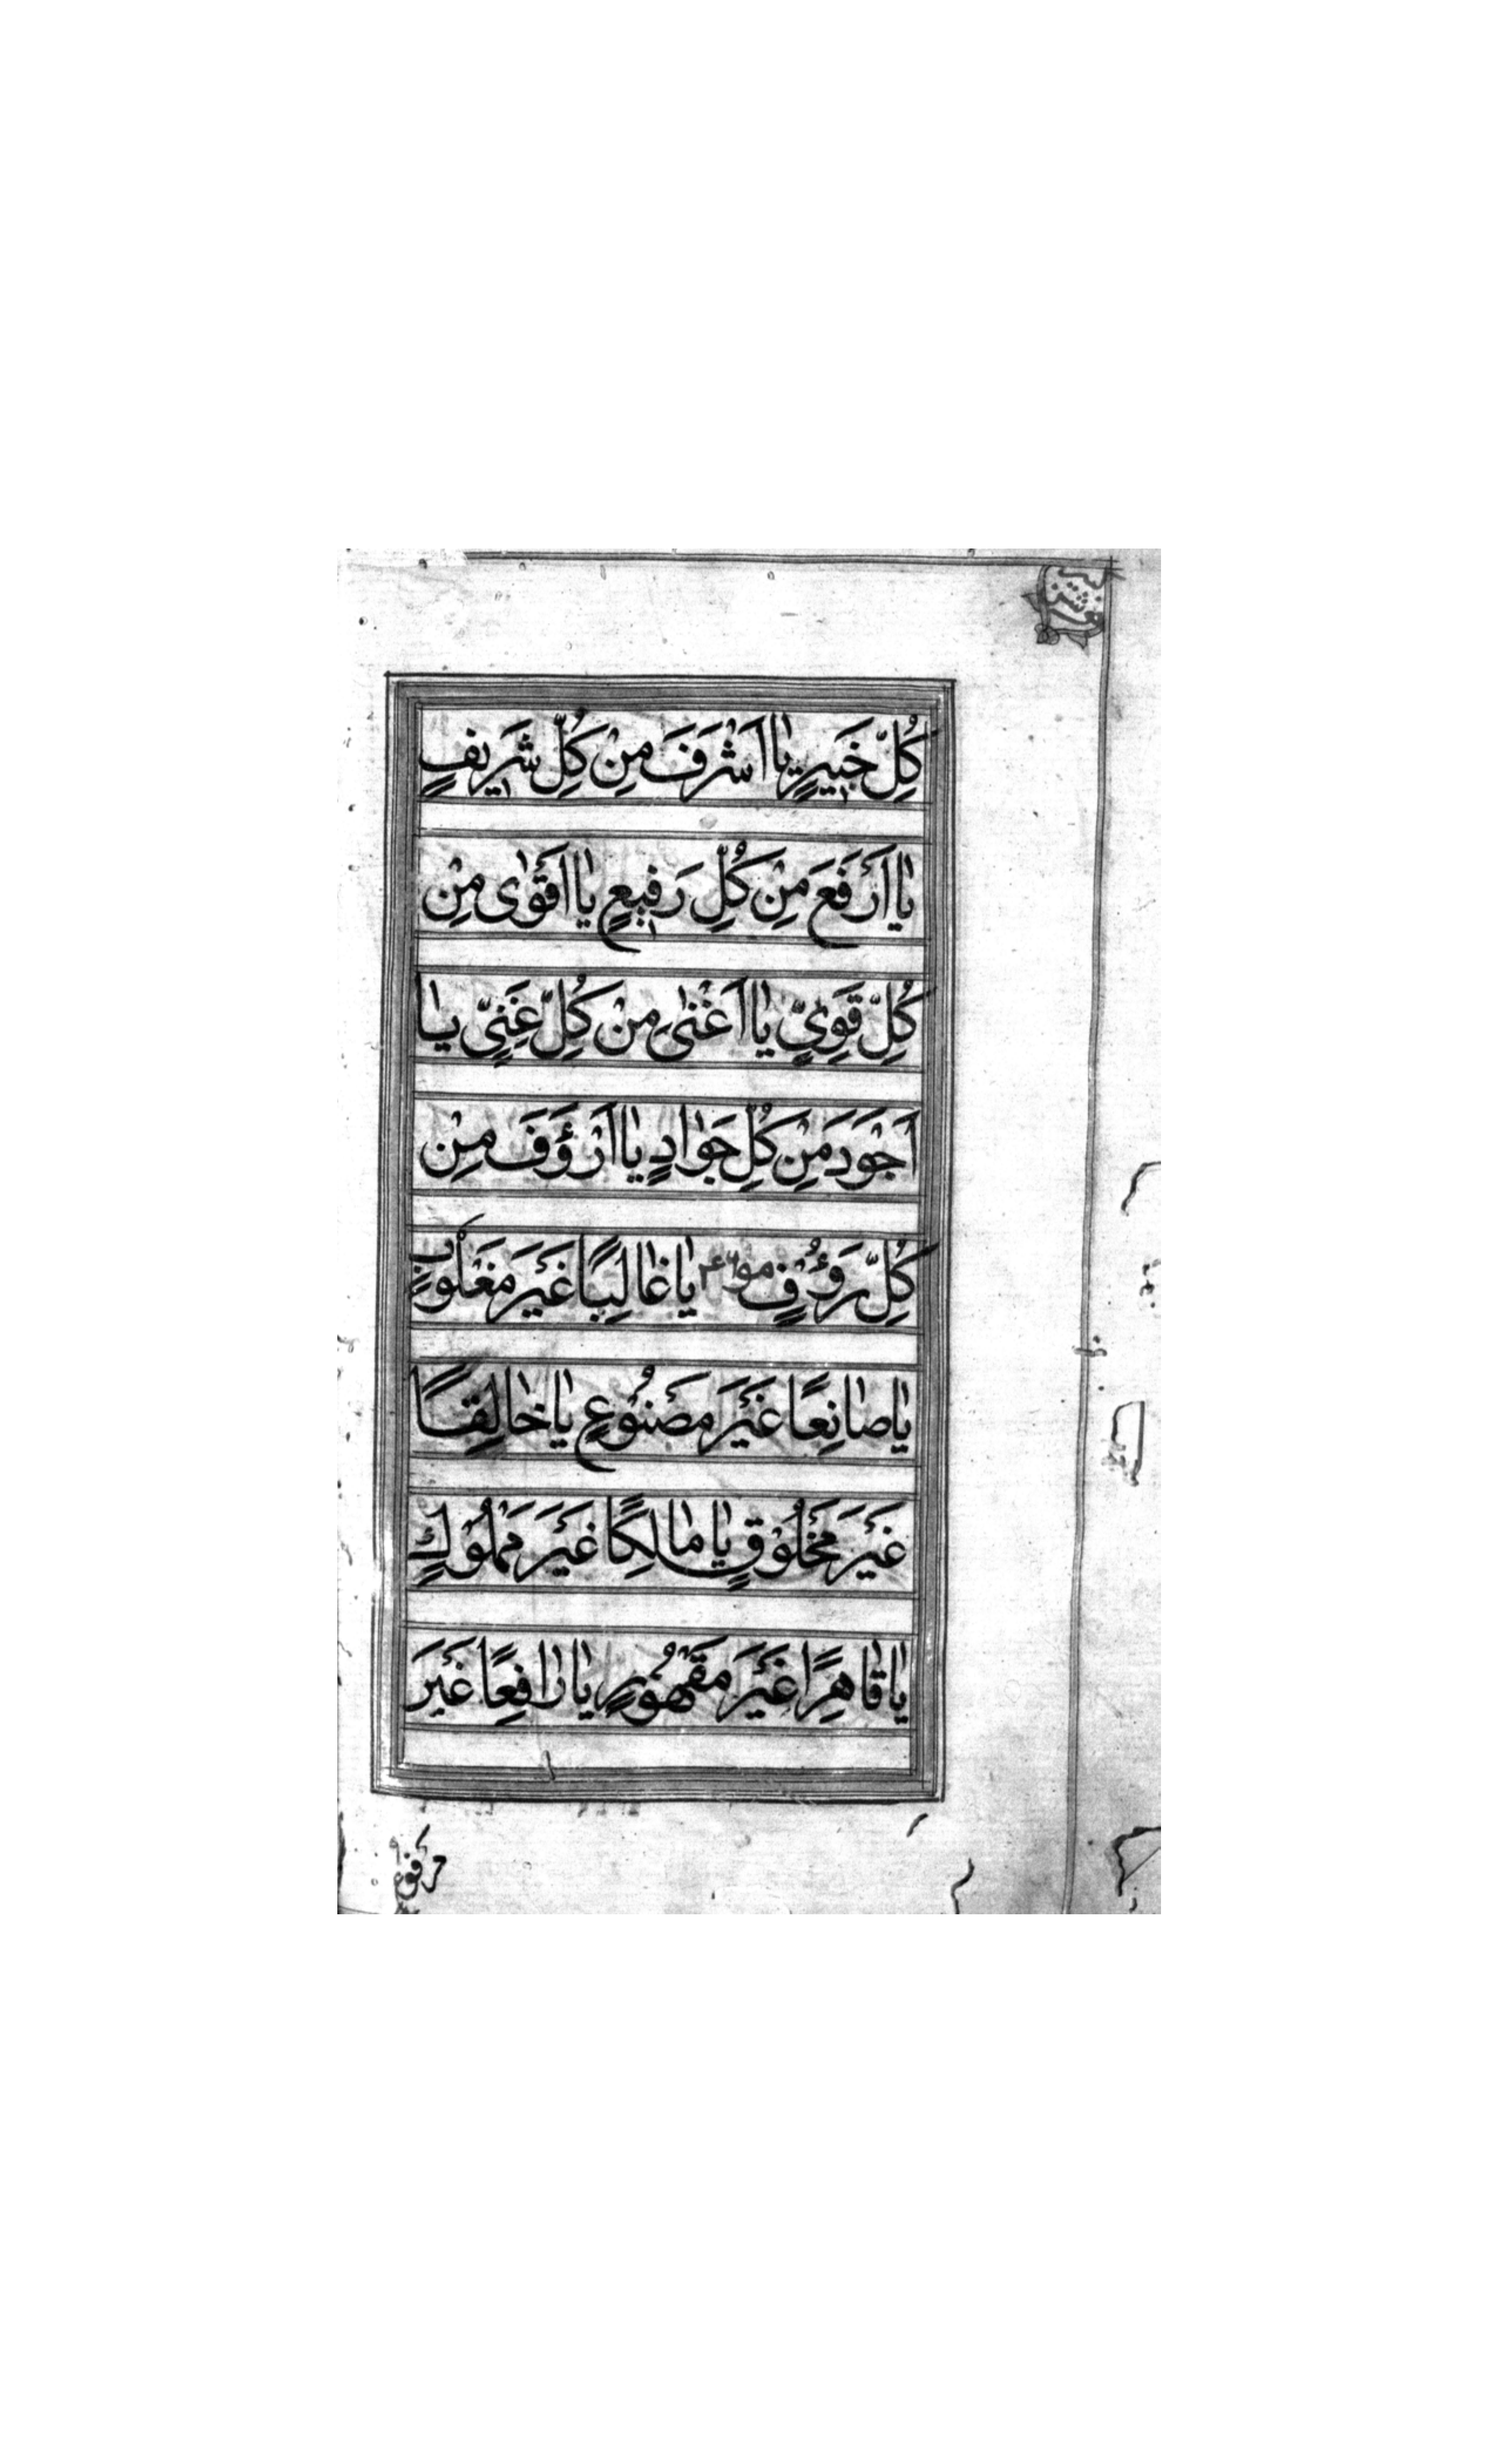 كُلِّ خَبيرٍ يٰا اَشْرَفَ مِنْ كُلِّ شَريفٍ
يٰا اَرْفَعَ مِنْ كُلِّ رَفيعٍ يٰا اَقْوٰى مِنْ
كُلِّ قَوِيٍّ يٰا اَغْنٰى مِنْ كُلِّ غَنِيٍّ يٰا
اَجْوَدَ مِنْ كُلِّ جَوٰادٍ يٰا اَرْؤَفَ مِنْ
كُلِّ رَؤُفٍ يٰا غٰالِبًا غَيْرَ مَغْلُوبٍ
يٰا صٰانِعًا غَيْرَ مَصْنُوعٍ يٰا خٰالِقًا
غَيْرَ مَخْلُوقٍ يٰا مٰالِكًا غَيْرَ مَمْلُوكٍ
يٰا قٰاهِرًا غَيْرَ مَقْهُورٍ يٰا رٰافِعًا غَيْرَ
مرفوع